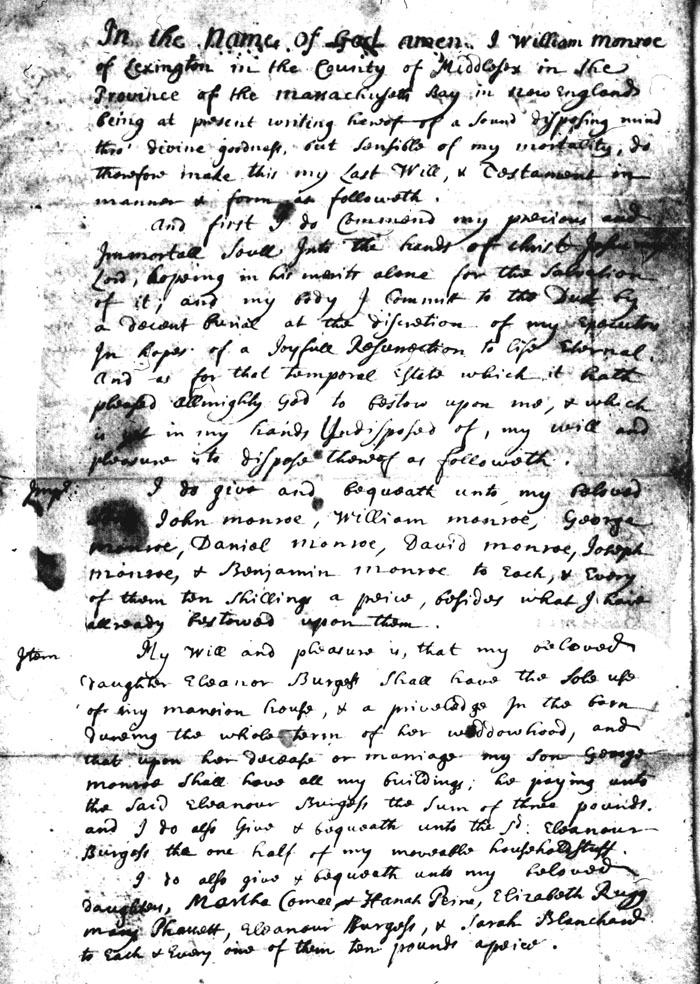 In the Name of God amen. I William monroe
of Lexington in the County of Middlesex in the
Province of the Massachusets Bay in New England
being at present writing hereof of a sound disposing mind
thro' divine goodness, but sensible of my mortality, do
therefore make this my Last Will, & Testament in
manner & form as followeth.
And first I do Commend my precious and
Immortall Soull Into the hands of christ Jesus my
Lord, hopeing in his merits alone for the Salvation
of it; and my body I Commit to the Dust by
a decent burial at the discretion of my Executors
In hopes of a Joyfull Resurrection to life Eternal.
And as for that temporal Estate which it hath
pleased allmighty God to bestow upon me, & which
is yet in my hands Undisposed of, my will and
pleasure is to dispose thereof as followeth.
Imps I do give and bequeath unto my beloved
John monroe, William monroe, George
monroe, Daniel monroe, David monroe, Joseph
monroe, & Benjamin monroe to Each, & Every
of them ten shillings a peice, besides what I have
allready bestowed upon them.
Item My Will and pleasure is, that my beloved
daughter Eleanor Burgess shall have the sole use
of my mansion house, & a priveledge In the barn
dureing the whole term of her weddowhood, and
that upon her decease or marriage my son George
monroe shall have all my buildings; he paying unto
the said Eleanour Burgess the Sum of three pounds.
and I do also Give & bequeath unto the sd. Eleanour
Burgess the one half of my moveable household stuff.
I do also give & bequeath unto my beloved
daughters, Martha Comee, & Hanah Peirc, Elizabeth Rugg
mary Farwell, Eleanour Burgess, & Sarah Blanchard
to Each & Every one of them ten pounds apeice.